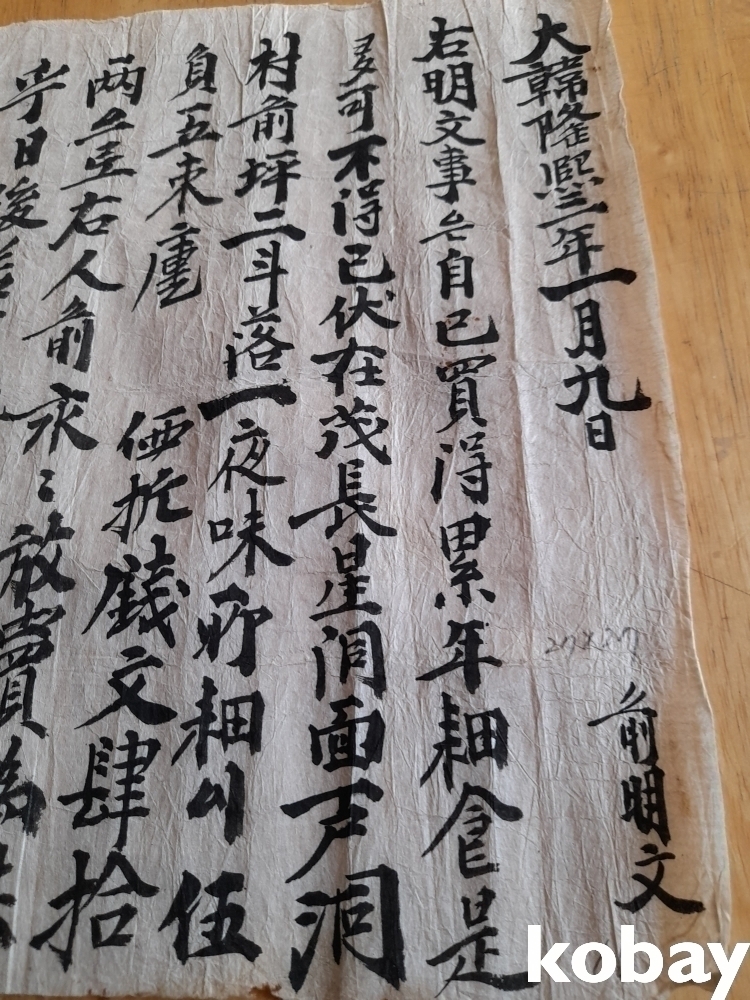 大韓隆熙三年一月九日 前明文
右明文事自己買得累年耕食是
多可不得已伏在茂長星洞面戸洞
村前坪二斗落一夜味所耕伍
負五束庫 価折錢文肆拾
両右人前永〻放賣為
乎日後
kobay